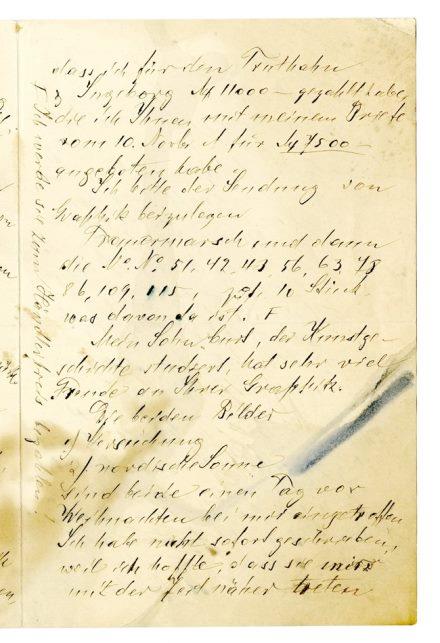 dass ich für den Truthahn
z Ingeborg M 11000 – gezahlt habe,
die ich Ihnen mit meinem Briefe
vom 10. Novbr für M 7500 –
angeboten habe.
Ich bitte der Sendung von
Graphik beizulegen
Trauermarsch und dann
die No No 51, 42, 43, 56, 63, 78
86, 109, 115, je Stück
was davon da ist. F
Mein Sohn Kurt, der Kunstge-
schichte studiert, hat sehr viel
Freude an Ihrer Graphik.
Die beiden Bilder
1) Versuchung
2) nordische Sonne
sind beide einen Tag vor
Weihnachten bei mir eingetroffen
Ich habe nicht sofort geschrieben,
weil ich hoffte, dass sie mir
mit der Zeit näher treten
F Ich werde sie zum Händlerpreis bezahlen.